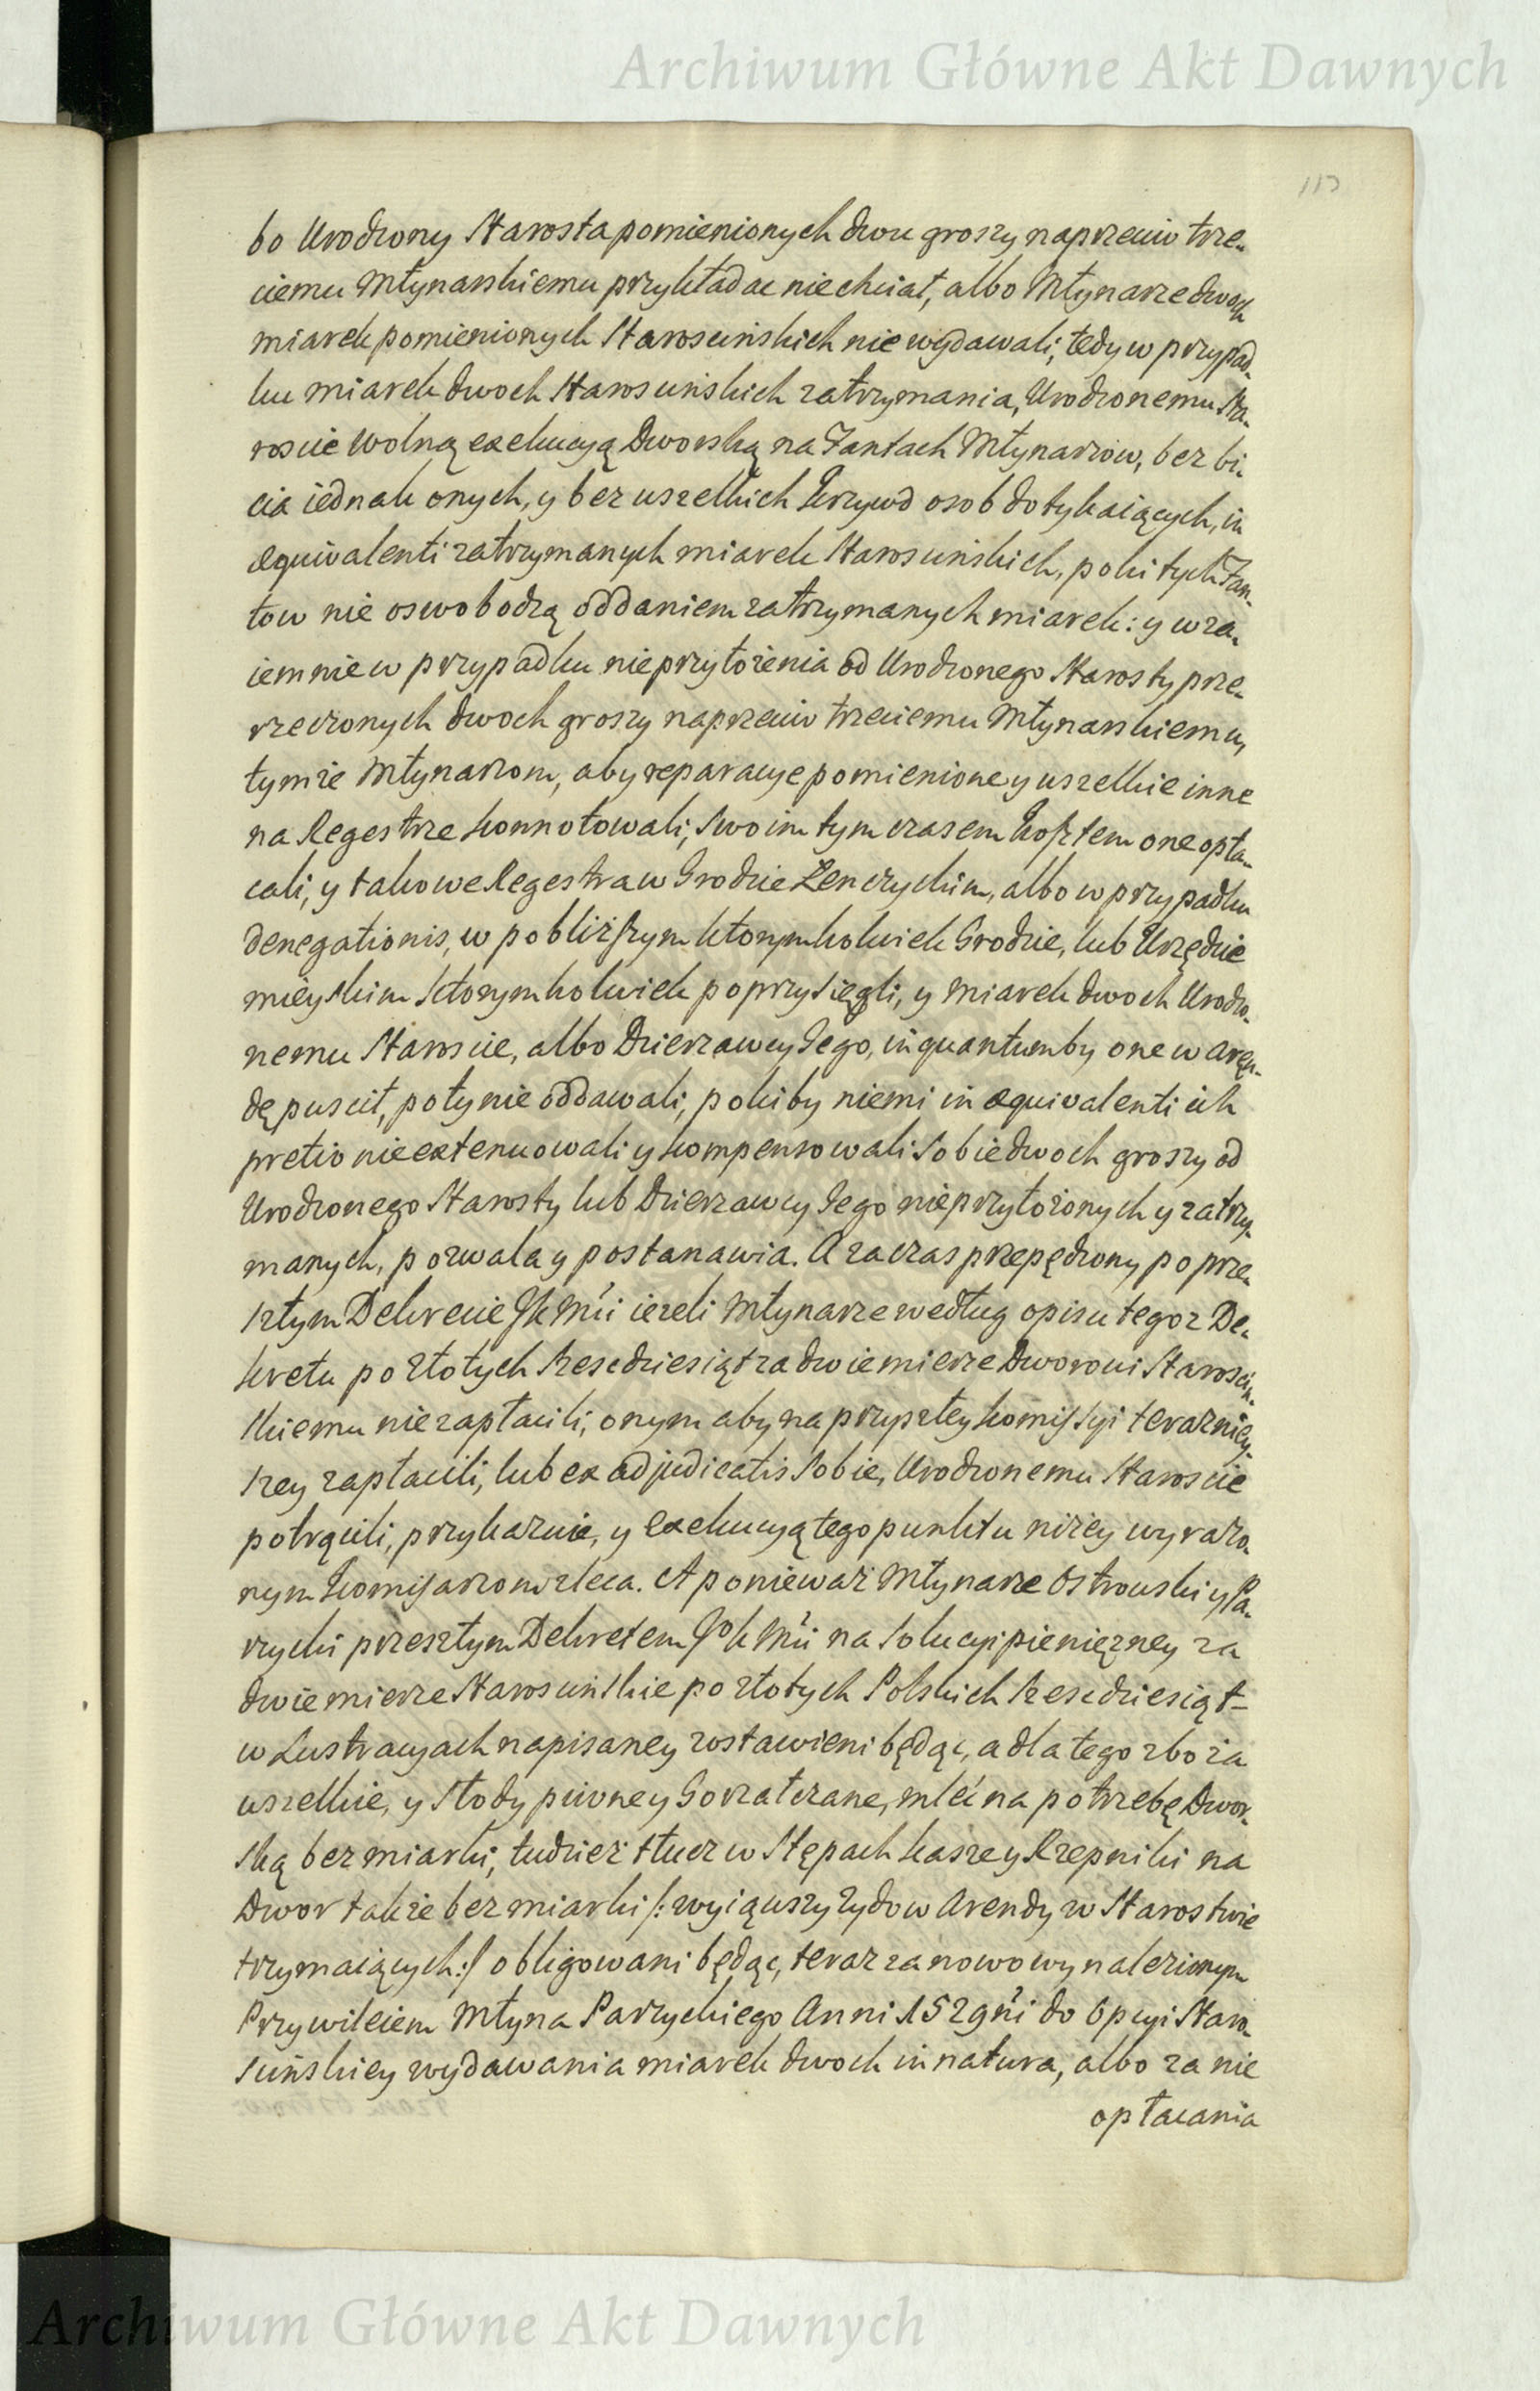 Archiwum Główne Akt Dawnych
113
bo Urodzony Starosta pomienionych dwu groszy naprzeciw trze-
ciemu Młynarskiemu przykładac niechciał, albo Młynarze dwoch
miarek pomienionych Starościnskich nie wydawali, tedy w przypad-
ku miarek dwoch Starościnskich zatrzymania, Urodzonemu Sta-
roscie wolną exekucyą Dworską na Fantach Młynarzow, bez bi-
cia iednak onych, y bez wszelkich krzywd osob dotykaiących, in
æquivalenti zatrzymanych miarek Starościnskich, poki tych Fan-
tow nie oswobodzą oddaniem zatrzymanych miarek: y wza-
iemnie w przypadku nieprzyłożenia od Urodzonego Starosty prze-
rzeczonych dwoch groszy naprzeciw trzeciemu Młynarskiemu,
tymże Młynarzom, aby reparacye pomienione y wszelkie inne
na Regestrze konnotowali, swoim tym czasem kosztem one opła-
cali, y takowe Regestra w Grodzie Łenczyckim, albo w przypadku
denegationis, w pobliższym ktorymkolwiek Grodzie, lub Urzędzie
mieyskim ktorymkolwiek poprzysięgli, y miarek dwoch Urodzo-
nemu Staroscie, albo Dzierzawcy Jego, in quantum by one w aręn-
dę puscił, poty nie oddawali, pokiby niemi in æquivalenti ich
pretio nie extenuowali y kompensowali sobie dwoch groszy od
Urodzonego Starosty lub Dzierzawcy Jego nieprzyłożonych y zatrzy-
manych, pozwala y postanawia. A za czas przepędzony po prze-
szłym Dekrecie JKMci ieżeli Młynarze według opisu tegoz De-
kretu po złotych szescdziesiąt za dwie mierze Dworowi Starościn-
skiemu nie zapłacili, onym aby na przyszłey kommissyi terazniey-
szey zapłacili, lub ex adjudicatis sobie, Urodzonemu Staroscie
potrącili, przykazuie, y exekucyą tego punktu niżey wyrażo-
nym kommisarzom zleca. A ponieważ Młynarze Ostrowski y Pa-
rzycki przeszłym Dekretem JoKMci na solucyi pieniężney za
dwie mierze Starościnskie po złotych Polskich szescdziesiąt
w Lustracyach napisaney zostawieni będąc, a dla tego zboża
wszelkie, y słody piwne y Gorzałczane, mleć na potrzebę Dwor-
ską bez miarki, tudzież tłuc w stępach kasze y Rzepniki na
Dwor także bez miarki /: wyiąwszy Zydow Arendy w Starostwie
trzymaiących :/ obligowani będąc, teraz za nowo wynalezionym
Przywileiem Młyna Parzyckiego Anni 1529ni do Opcyi Staro-
scinskiey wydawania miarek dwoch in natura, albo za nie
opłacania
Archiwum Główne Akt Dawnych